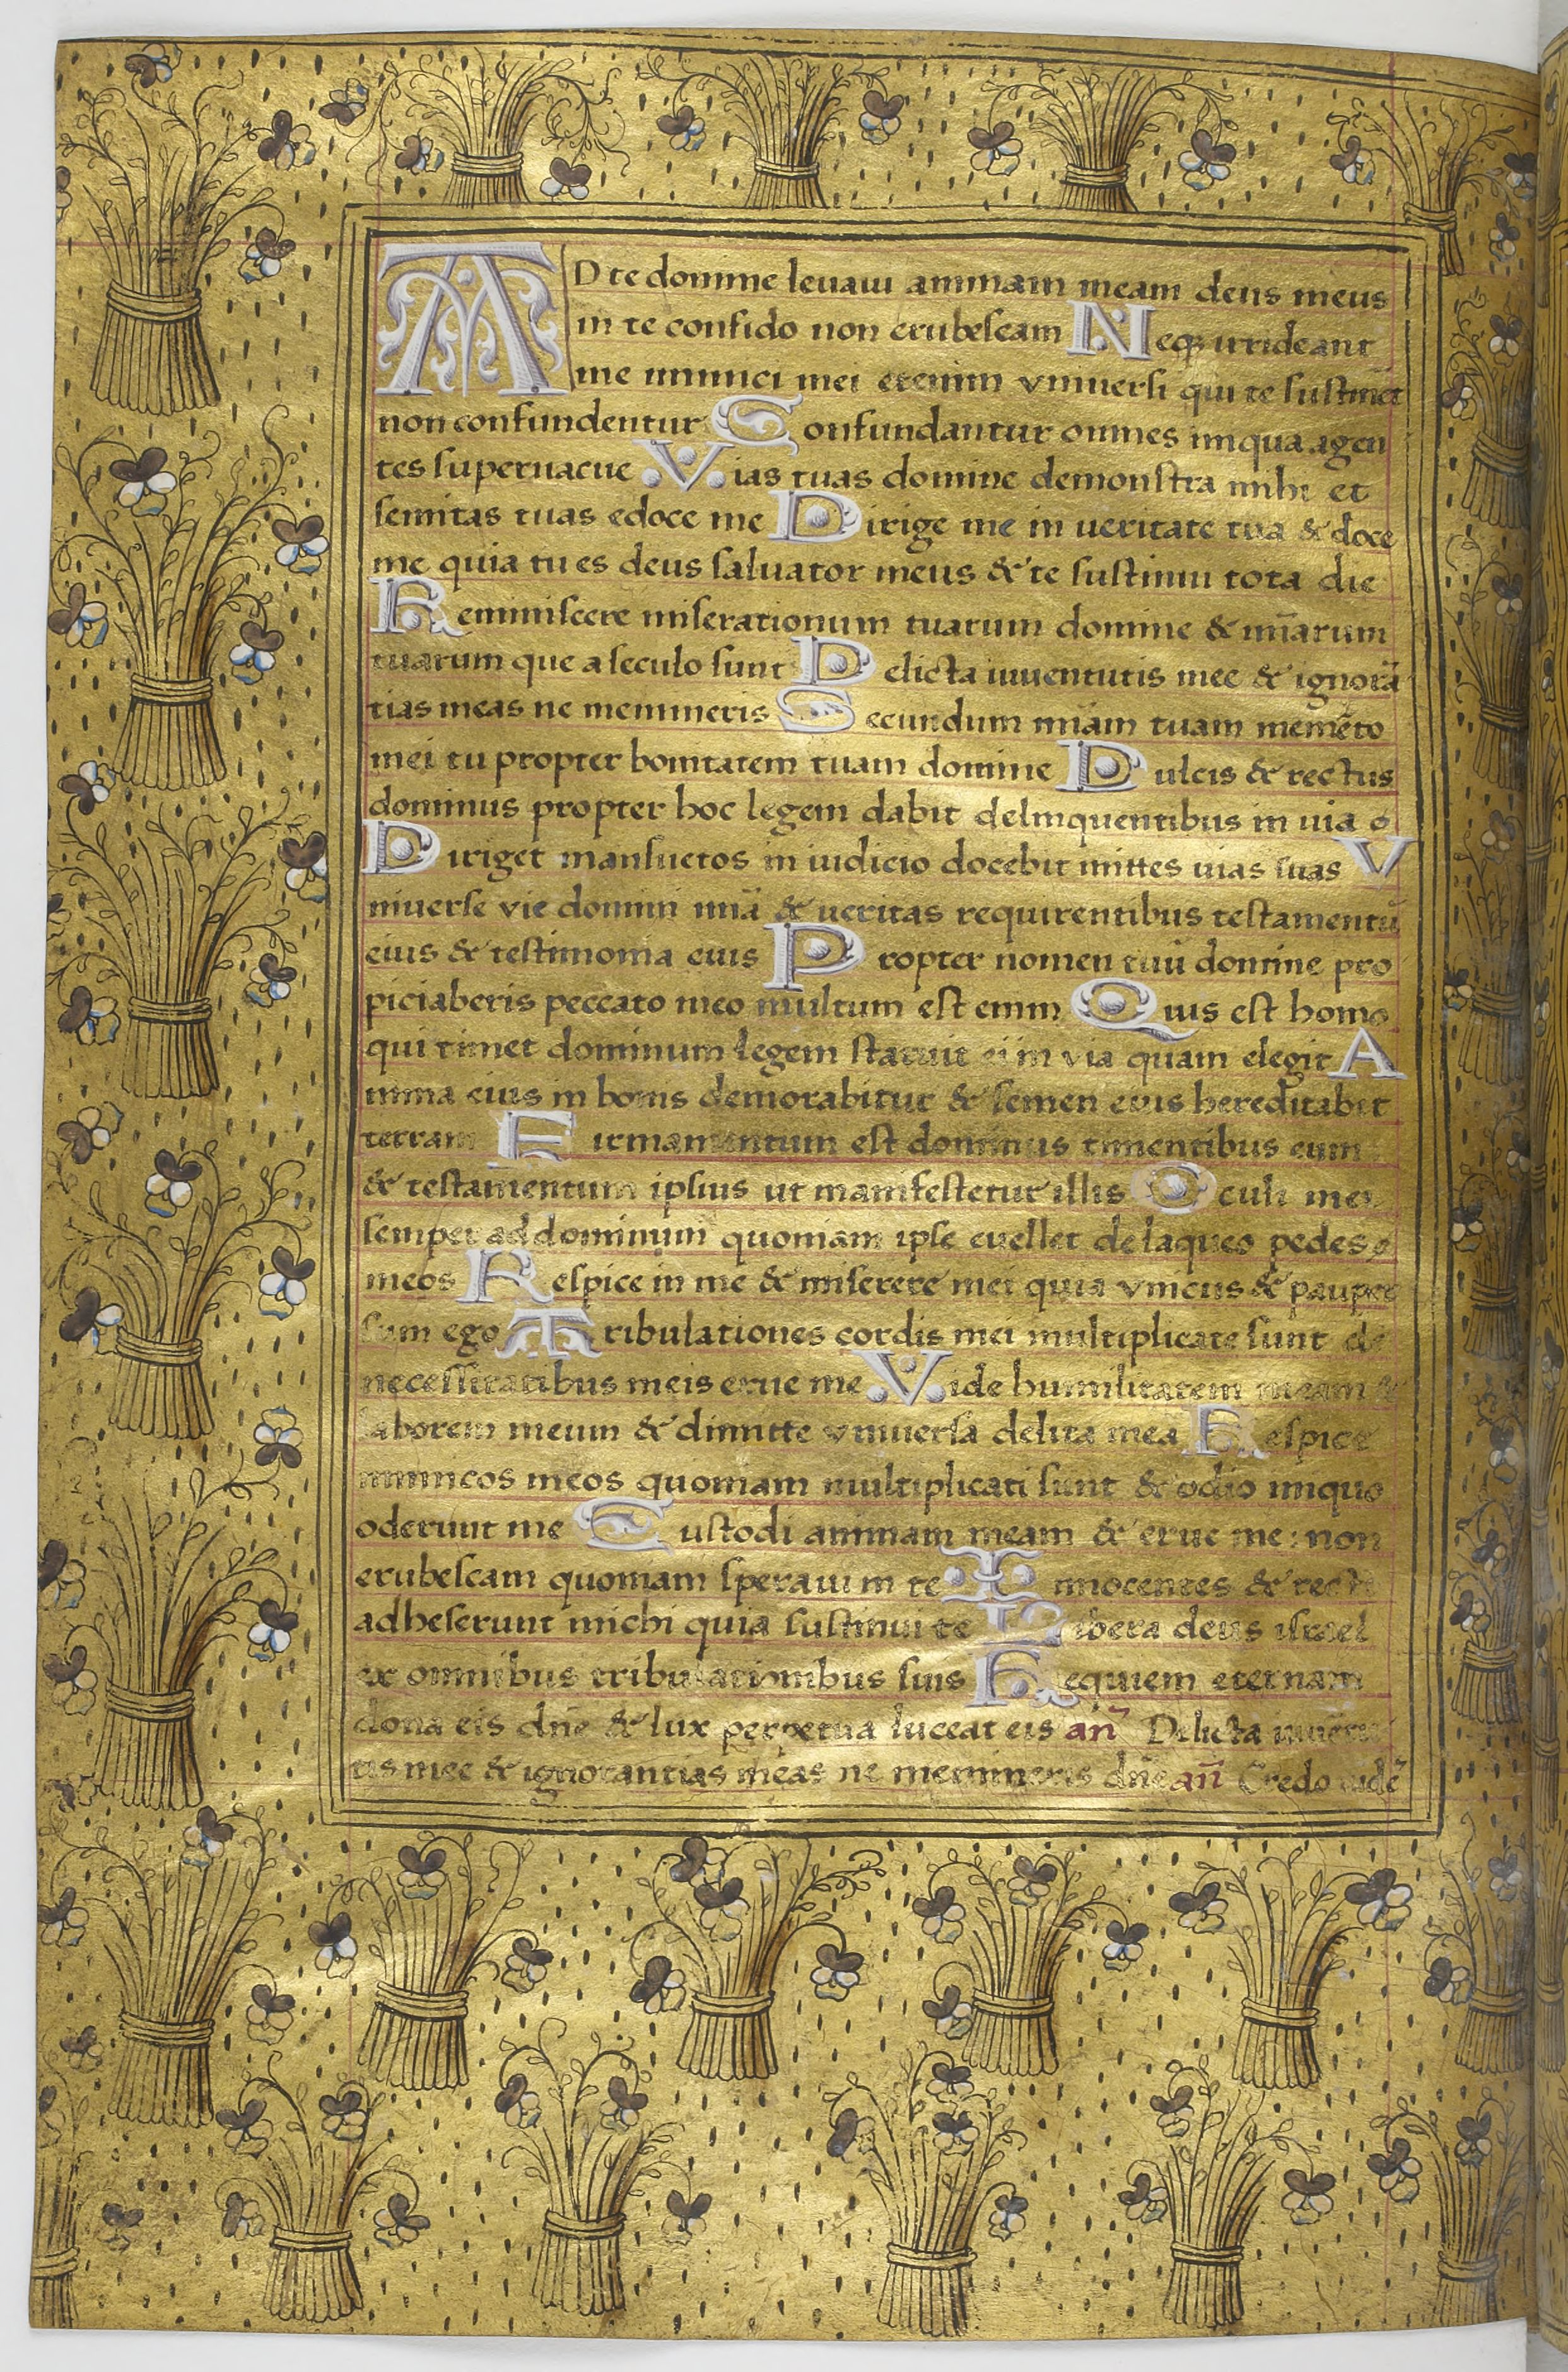 AD te domine levavi animam meam deus meus
in te confido non erubescam Neqꝫ irrideant
me inimici mei etenim vniuersi qui te sustinēt
non confundentur Confundantur omnes iniqua agen
tes superuacue Vias tuas domine demonstra mihi et
semitas tuas edoce me Dirige me in ueritate tua & doce
me quia tu es deus saluator meus & te sustinui tota die
Reminiscere miserationum tuarum domine & mīarum
tuarum que a seculo sunt Delicta iuuentutis mee & ignorā
tias meas ne memineris Secundum mīam tuam memēto
mei tu propter bonitatem tuam domine Dulcis & rectus
dominus propter hoc legem dabit delinquentibus in uia
Diriget mansuetos in iudicio docebit mittes uias suas V
niuerse vie domini mīā & ueritas requirentibus testamentū
eius & testimonia eius Propter nomen tuū domine pro
piciaberis peccato meo multum est enim Quis est homo
qui timet dominum legem statuit ei in via quam elegit A
nima eius in bonis demorabitur & semen eius hereditabit
terram Firmamentum est dominus timentibus eum
& testamentum ipsius ut manifestetur illis Oculi mei
semper ad dominum quoniam ipse euellet de laqueo pedes
meos Respice in me & miserere mei quia vnicus & pauper
sum ego Tribulationes cordis mei multiplicate sunt de
necessitatibus meis erue me Vide humilitatem meam &
laborem meum & dimitte vniuersa delicta mea Respice
inimicos meos quoniam multiplicati sunt & odio iniquo
oderunt me Custodi animam meam & erue me : non
erubescam quoniam speraui in te Innocentes & recti
adheserunt michi quia sustinui te Libera deus israel
ex omnibus tribulationibus suis Requiem eternam
dona eis dn̄e & lux perpetua luceat eis an̄ Delicta iuuētu
tis mee & ignorantias meas ne memineris dn̄e an̄ Credo uidē